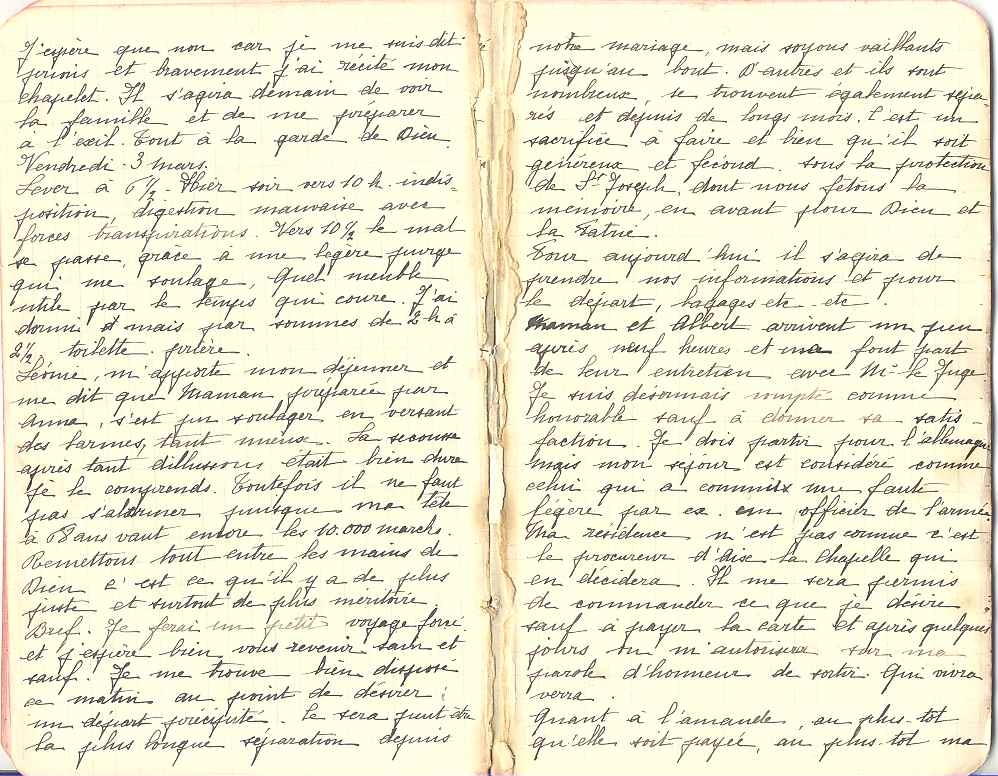 J'espère que non car je me suis dit
prions et bravement j'ai récité mon
chapelet. Il s'agira demain de voir
la famille et de me préparer
à l'exil. Tout à la garde de Dieu.
Vendredi. 3 mars.
Lever à 6 1/2. Hier soir vers 10 h. indis-
position, digestion mauvaise avec
forces transpirations. Vers 10 1/2 le mal
se passe, grâce à une légère purge
qui me soulage, Quel meuble
utile par le temps qui coure. J'ai
dormi et mais par sommes de 2 h à
2 1/2. toilette. prière.
Léonie, m'apporte mon déjeuner et
me dit que Maman, préparée par
Anna, s'est pu soulager en versant
des larmes, tant mieux. La secousse
après tant dillussons était bien dure
je le comprends. Toutefois il ne faut
pas s'alarmer puisque ma tête
à 68 ans vaut encore les 10.000 marcks.
Remettons tout entre les mains de
Dieu c'est ce qu'il y a de plus
juste et surtout de plus méritoire.
Bref. Je ferai un petit voyage forcé
et j'espère bien vous revenir sain et
sauf. Je me trouve bien disposé
ce matin au point de désirer
un départ précipité. Ce sera peut être
la plus longue séparation depuis
notre mariage, mais soyons vaillants
jusqu'au bout. D'autres et ils sont
nombreux, se trouvent également sépa-
rés et depuis de longs mois. C'est un
sacrifice à faire et bien qu'il soit
généreux et fécond. sous la protection
de St Joseph, dont nous fêtons la
mémoire, en avant pour Dieu et
la Patrie.
Pour aujourd'hui il s'agira de
prendre nos informations et pour
le départ, bagages etc etc.
Maman et Albert arrivent un peu
après neuf heures et me font part
de leur entretien avec Mr le Juge.
Je suis désormais compté comme
honorable sauf à donner sa satis-
faction. Je dois partir pour l'allemagne
mais mon séjour est considéré comme
celui qui a commis une faute
légère par ex. un officier de l'armée.
Ma résidence n'est pas connue c'est
le procureur d'Aix la Chapelle qui
en décidera. Il me sera permis
de commander ce que je désire
sauf à payer la carte et après quelques
jours on m'autorisera sur ma
parole d'honneur de sortir. Qui vivra
verra.
Quant à l'amande, au plus-tot
qu'elle soit payée, au plus-tot ma